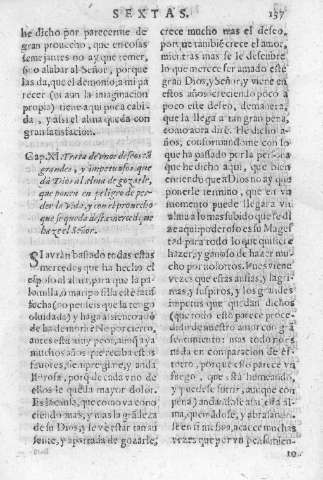 SEXTAS.
157
he dicho por parecerme de
gran prouecho, que en cosas
semejantes no ay que temer,
sino alabar al Señor, porque
las da, que el demonio, a mi pa
recer (ni aun la imaginacion
propia) tiene aqui poca cabi-
da, y assi el alma queda con
gran satisfacion.
Cap. XI. Trata de unos deseos tã
grandes, y impetuosos, que
da Dios al Alma de gozarle,
que ponen en peligro de per-
der la vida, y con el prouecho
que se queda desta merced, que
haze el Señor.
SI avràn bastado todas estas
mercedes que ha hecho el
esposo al alma, para que la pa-
lomilla, o mariposilla estè satis-
fecha (no penseis que la tengo
oluidada) y haga assiento adõ
de ha de morir? No por cierto,
antes està muy peor, aunq̃ aya
muchos años que reciba estos
fauores, siempre gime, y anda
llorosa, porq̃ de cada vno de
ellos le queda mayor dolor.
Es la causa, que como va cono
ciendo mas, y mas las grãdezas
de su Dios, y se ve estar tan au
sente, y apartada de gozarle,
crece mucho mas el deseo,
porque tambiẽ crece el amor,
mientras mas se le descubre
lo que merece ser amado este
gran Dios, y Señor, y viene en
estos años creciendo poco à
poco este deseo, de manera,
que la llega a tan gran pena,
como aora dirè. He dicho a-
ños, conformandome con lo
que ha passado por la persona
que he dicho aqui, que bien
entiendo que a Dios no ay que
ponerle termino, que en vn
momento puede llegar a vn
alma a lo mas subido que se dí
ze aqui: poderoso es su Mages
tad para todo lo que quisiere
hazer, y ganoso de hazer mu-
cho por nosotros. Pues viene
vezes que estas ansias, y lagri-
mas, y suspiros, y los grandes
impetus que quedan dichos
(que todo esto parece proce-
dido de nuestro amor con grã
sentimiento; mas todo no es
nada en comparacion de es-
totro, porque esto parece vn
fuego, que està humeando,
y puedese sufrir, aunque con
pena) andandose assi esta al-
ma, quemãdose, y abrasando-
se en si misma, acaece muchas
vezes que por vn pensamien-
to